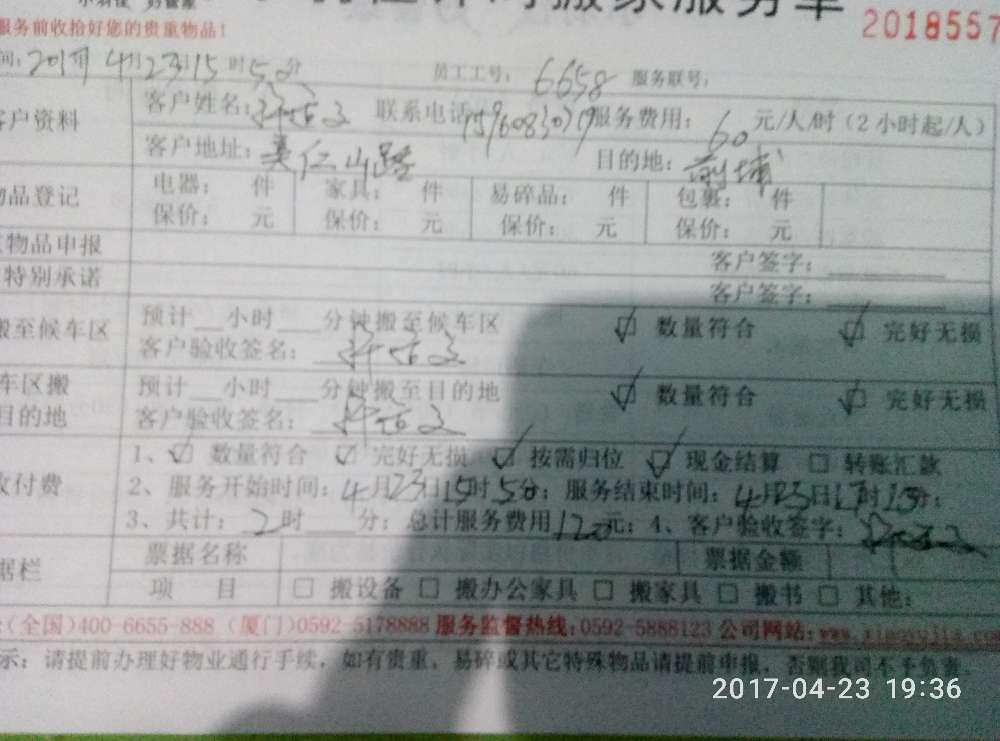 小羽佳 好管家
计时搬家服务单
2018557
服务前收拾好您的贵重物品！
间：2017年4月23日15时5分 员工工号：6658 服务联号：
客户资料 客户姓名： 联系电话 服务费用：60元/人/时（2小时起/人）
客户地址： 仁山路 目的地：前埔
物品登记 电器： 件 家具： 件 易碎品： 件 包裹： 件
保价： 元 保价： 元 保价： 元 保价： 元
物品申报 客户签字：
特别承诺 客户签字：
搬至候车区 预计__小时___分钟搬至候车区 ☑ 数量符合 ☑ 完好无损
客户验收签名：
车区搬 预计__小时___分钟搬至目的地 ☑ 数量符合 ☑ 完好无损
目的地 客户验收签名：
收付费 1、☑ 数量符合 ☑ 完好无损 ☑ 按需归位 ☑ 现金结算 □ 转账汇款
2、服务开始时间：4月23日15时5分；服务结束时间：4月23日17时15分；
3、共计：2时___分；总计服务费用120元；4、客户验收签字：
据栏 票据名称 票据金额
项 目 □ 搬设备 □ 搬办公家具 □ 搬家具 □ 搬书 □ 其他：
（全国）400-6655-888 （厦门）0592-5178888 服务监督热线：0592-5888123 公司网站：www.xiaoyujia.com
示：请提前办理好物业通行手续，如有贵重、易碎或其它特殊物品请提前申报，否则我司不予负责。
2017-04-23 19:36